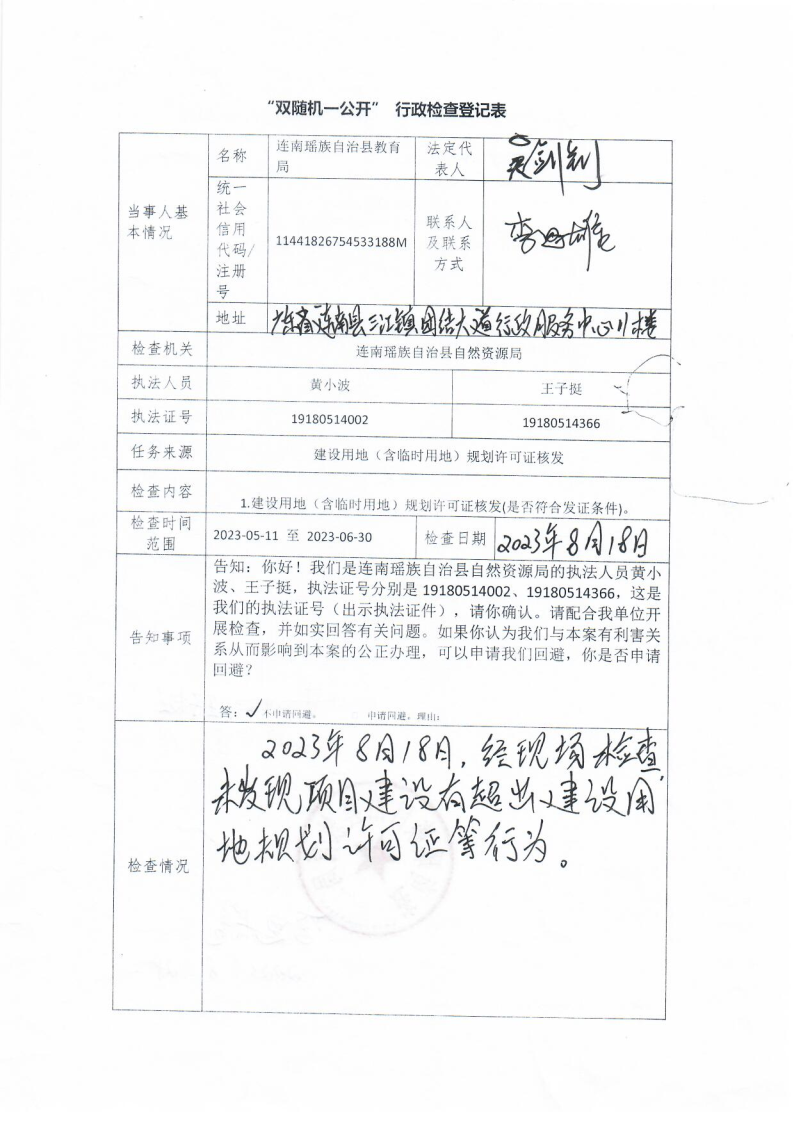 “双随机一公开” 行政检查登记表
当事人基
本情况
名称
连南瑶族自治县教育
局
法定代
表人
剑
统一
社会
信用
代码/
注册
号
11441826754533188M
联系人
及联系
方式
地址
广东省连南县三江镇团结大道行政服务中心11楼
检查机关
连南瑶族自治县自然资源局
执法人员
黄小波
王子挺
执法证号
19180514002
19180514366
任务来源
建设用地（含临时用地）规划许可证核发
检查内容
1.建设用地（含临时用地）规划许可证核发(是否符合发证条件)。
检查时间
范围
2023-05-11 至 2023-06-30
检查日期
2023年8月18日
告知事项
告知：你好！我们是连南瑶族自治县自然资源局的执法人员黄小
波、王子挺，执法证号分别是 19180514002、19180514366，这是
我们的执法证号（出示执法证件），请你确认。请配合我单位开
展检查，并如实回答有关问题。如果你认为我们与本案有利害关
系从而影响到本案的公正办理，可以申请我们回避，你是否申请
回避？
答：✓不申请回避。 申请回避，理由：
检查情况
2023年8月18日，经现场检查，
未发现项目建设有超出建设用
地规划许可证等行为。